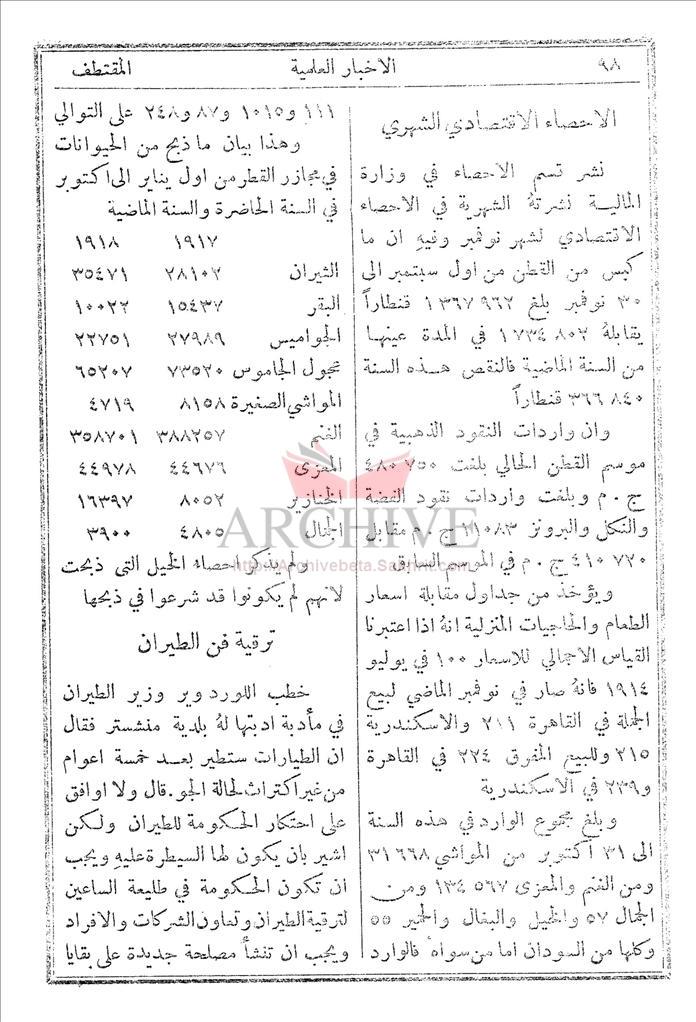 ٩٨
الاخبار العلمية
المقتطف
الاحصاء الاقتصادي الشهري
نشر قسم الاحصاء في وزارة
المالية نشرتهُ الشهرية في الاحصاء
الاقتصادي لشهر نوفمبر وفيهِ ان ما
كبس من القطن من اول سبتمبر الى
٣٠ نوفمبر بلغ ١٣٦٧٩٦٢ قنطاراً
يقابلهُ ١٧٣٤٨٠٢ في المدة عينها
من السنة الماضية فالنقص هذه السنة
٣٦٦٨٤٠ قنطاراً
وان واردات النقود الذهبية في
موسم القطن الحالي بلغت ٤٨٠٧٥٠
ج . م وبلغت واردات نقود الفضة
والنكل والبرونز ١١٠٨٣ ج . م مقابل
٤١٠٧٢٠ ج . م في الموسم السابق
ويؤخذ من جداول مقابلة اسعار
الطعام والحاجيات المنزلية انهُ اذا اعتبرنا
القياس الاجمالي للاسعار ١٠٠ في يوليو
١٩١٤ فانهُ صار في نوفمبر الماضي لبيع
الجملة في القاهرة ٢١١ والاسكندرية
٢١٥ وللبيع المفرق ٢٢٤ في القاهرة
و٢٣٩ في الاسكندرية
وبلغ مجموع الوارد في هذه السنة
الى ٣١ اكتوبر من المواشي ٣١٦٦٨
ومن الغنم والمعزى ١٣٤٥٦٧ ومن
الجمال ٥٧ والخيل والبغال والحمير ٥٥
وكلها من السودان اما من سواه فالوارد
١١١ و١٠١٥ و٨٧ و٢٤٨ على التوالي
وهذا بيان ما ذبح من الحيوانات
في مجازر القطر من اول يناير الى اكتوبر
في السنة الحاضرة والسنة الماضية
١٩١٧ ١٩١٨
الثيران ٢٨١٠٢ ٣٥٤٧١
البقر ١٥٤٣٧ ١٠٠٢٢
الجواميس ٢٧٩٨٩ ٢٢٧٥١
عجول الجاموس ٧٣٥٢٠ ٦٥٢٠٧
المواشي الصغيرة ٨١٥٨ ٤٧١٩
الغنم ٣٨٨٢٥٧ ٣٥٨٧٠١
المعزى ٤٤٦٧٦ ٤٤٩٧٨
الخنازير ٨٠٥٢ ١٦٣٩٧
الجمال ٤٨٠٥ ٣٩٠٠
ولم يذكر احصاء الخيل التى ذبحت
لانهم لم يكونوا قد شرعوا في ذبحها
ترقية فن الطيران
خطب اللورد وير وزير الطيران
في مأدبة ادبتها لهُ بلدية منشستر فقال
ان الطيارات ستطير بعد خمسة اعوام
من غير اكتراث لحالة الجو . قال ولا اوافق
على احتكار الحكومة للطيران ولكن
اشير بان يكون لها السيطرة عليهِ ويجب
ان تكون الحكومة في طليعة الساعين
لترقية الطيران وتعاون الشركات والافراد
ويجب ان تنشأ مصلحة جديدة على بقايا
ARCHIVE